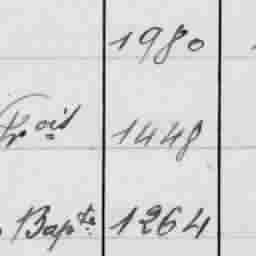 1980
Fr.ois 1448
Bapte 1264